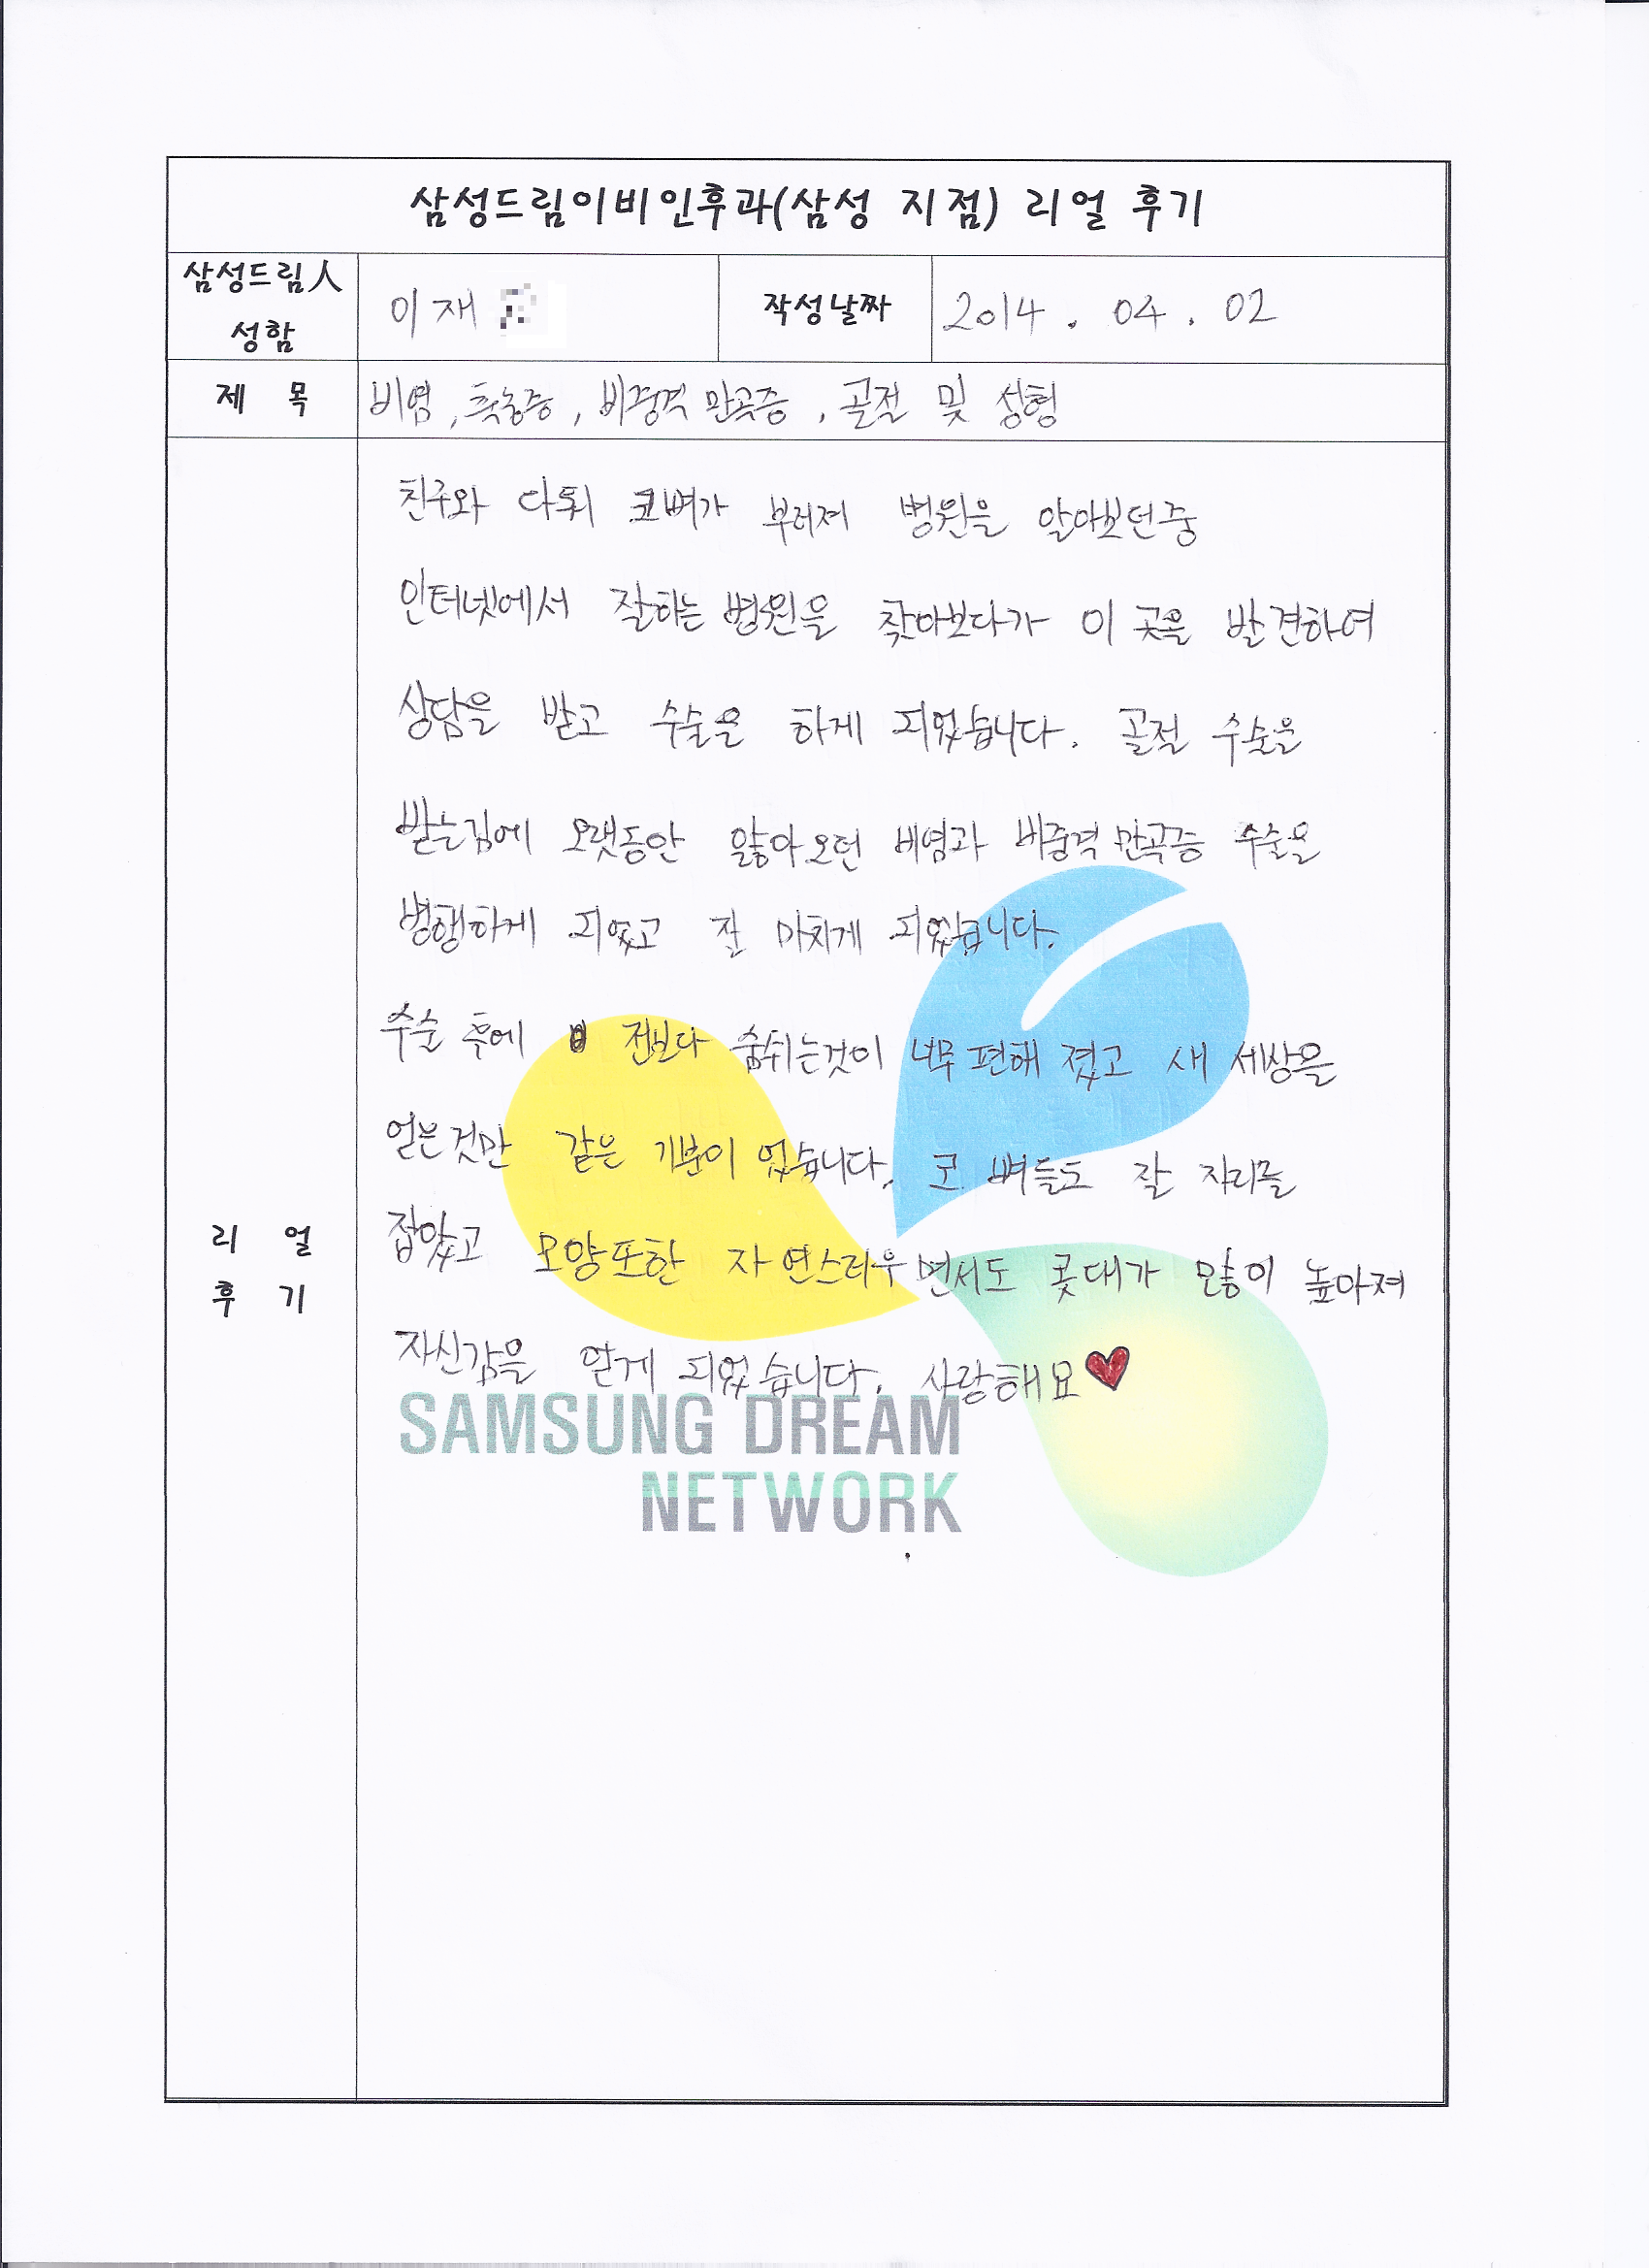 삼성드림이비인후과(삼성 지점) 리얼 후기
삼성드림人
성함
이재
작성날짜
2014. 04. 02
제 목
비염, 축농증, 비중격 만곡증, 골절 및 성형
친구와 다퉈 코뼈가 부러져 병원을 알아보던중
인터넷에서 잘하는 병원을 찾아보다가 이 곳을 발견하여
상담을 받고 수술을 하게 되었습니다. 골절 수술을
받는김에 오랫동안 앓아오던 비염과 비중격 만곡증 수술을
병행하게 되었고 잘 마치게 되었습니다.
수술 후에 전보다 숨쉬는것이 너무 편해 졌고 새 세상을
얻은것만 같은 기분이 었습니다. 코 뼈들도 잘 자리를
잡았고 모양또한 자연스러우면서도 콧대가 많이 높아져
자신감을 얻게 되었습니다. 사랑해요
리 얼
후 기
SAMSUNG DREAM
NETWORK